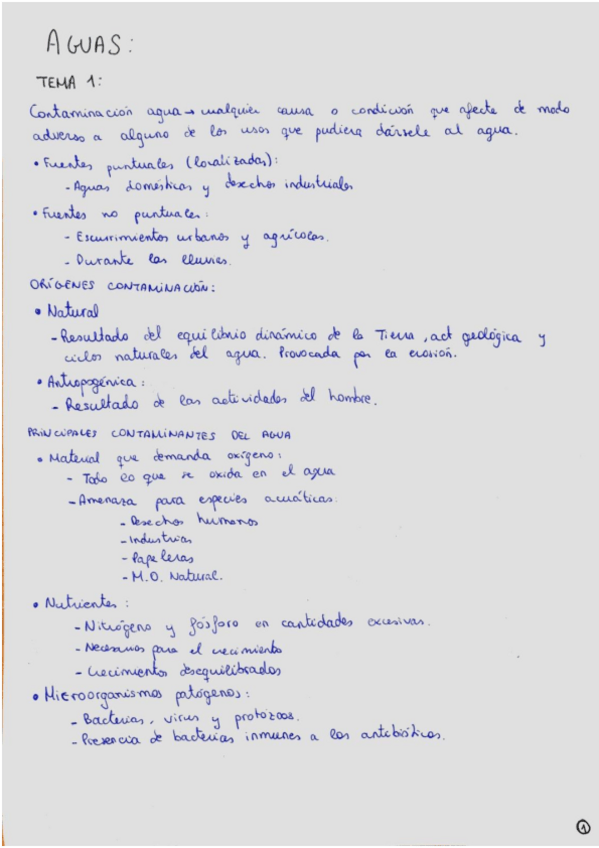 AGUAS:
TEMA 1:
Contaminación agua → cualquier causa o condición que afecte de modo
adverso a alguno de los usos que pudiera dársele al agua.
• Fuentes puntuales (localizadas):
- Aguas domésticas y desechos industriales
• Fuentes no puntuales:
- Escurrimientos urbanos y agrícolas.
- Durante las lluvias.
ORÍGENES CONTAMINACIÓN:
• Natural
- Resultado del equilibrio dinámico de la Tierra, act geológica y
ciclos naturales del agua. Provocada por la erosión.
• Antropogénica:
- Resultado de las actividades del hombre.
PRINCIPALES CONTAMINANTES DEL AGUA
• Material que demanda oxígeno:
- Todo lo que se oxida en el agua
- Amenaza para especies acuáticas.
- Desechos humanos
- Industrias
- Papeleras
- M.O. Natural.
• Nutrientes:
- Nitrógeno y fósforo en cantidades excesivas.
- Necesarios para el crecimiento
- Crecimientos desequilibrados
• Microorganismos patógenos:
- Bacterias, virus y protozoos.
- Presencia de bacterias inmunes a los antibióticos.
1